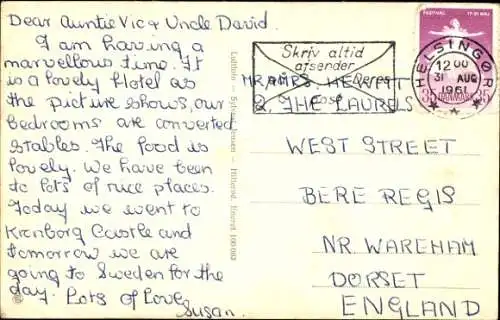 Dear Auntie Vic & Uncle David.
I am having a
marvellous time. It
is a lovely Hotel as
the picture shows, our
bedrooms are converted
stables. The food is
lovely. We have been
to lots of nice places.
Today we went to
Kronborg Castle and
tomorrow we are
going to Sweden for the
day. Lots of Love
Susan.
Skriv altid
afsender
FESTIVAL
17-31 MAJ
HELSINGØR
12 00
31 AUG
1961
35 DANMARK 35
MR & MRS.
& THE LAURELS
WEST STREET
BERE REGIS
NR. WAREHAM
DORSET
ENGLAND